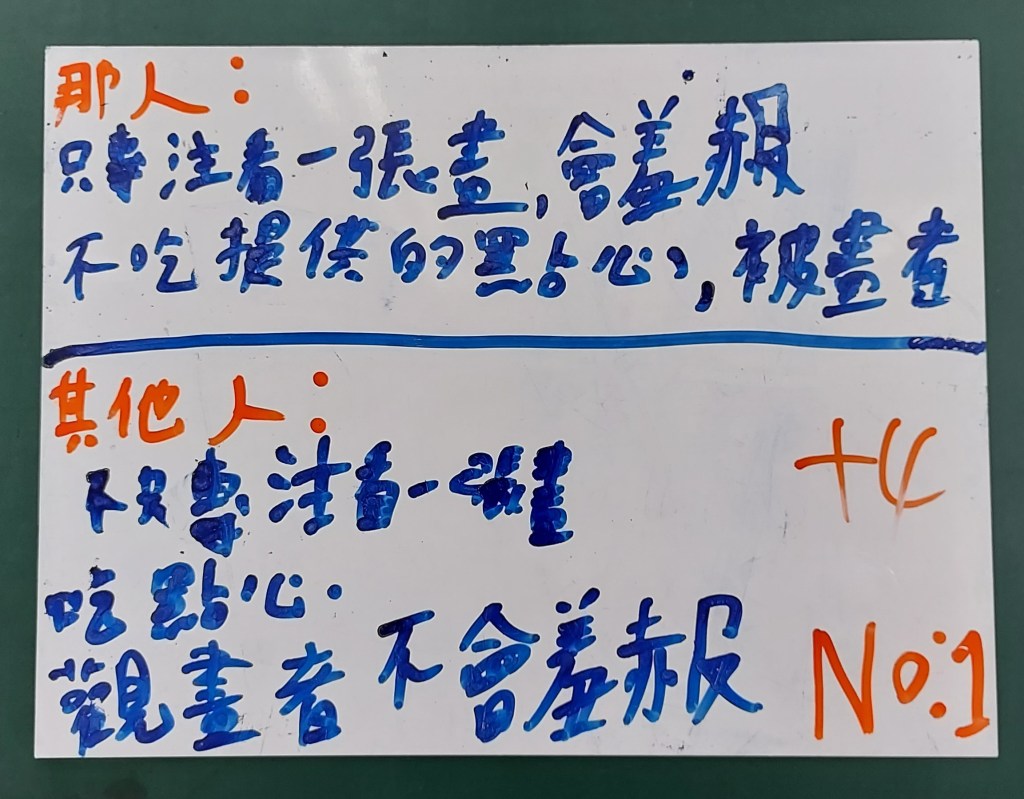 那人：
只專注看一張畫,會羞赧
不吃提供的點心,被畫者
其他人：
不只專注看一張畫
+4
吃點心.
觀畫者 不會羞赧
No:1